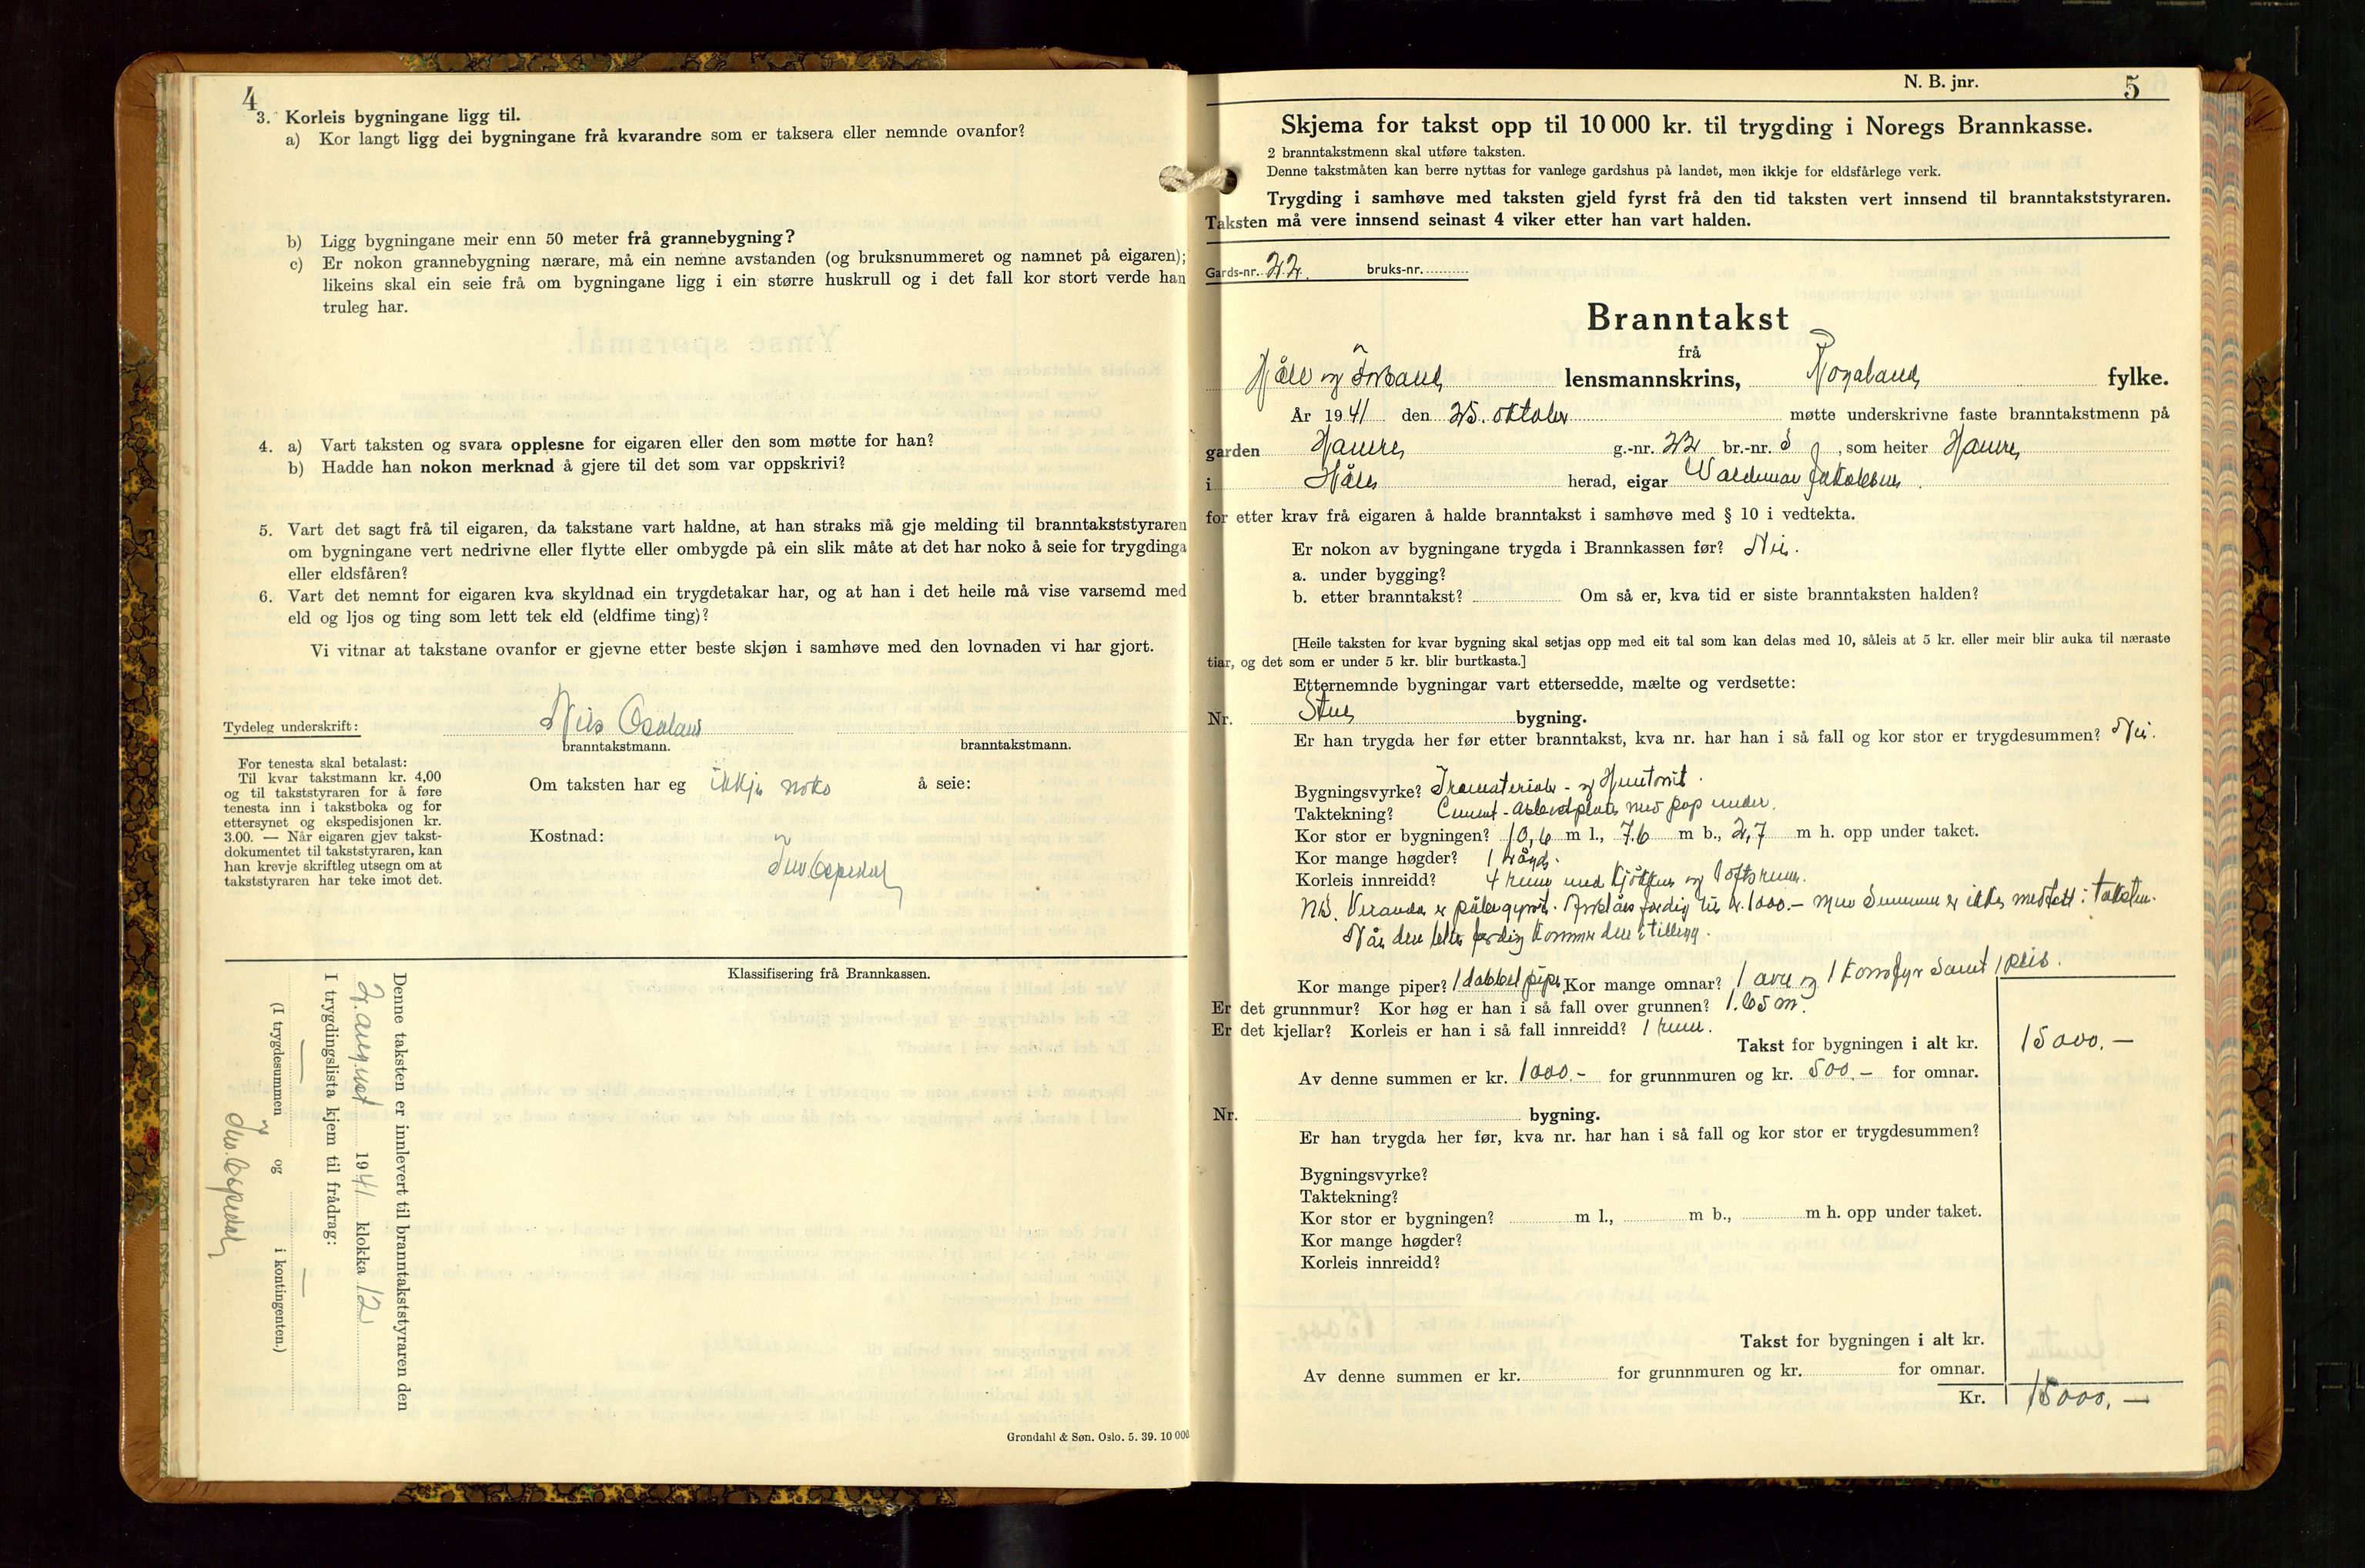 4
3. Korleis bygningane ligg til.
a) Kor langt ligg dei bygningane frå kvarandre som er taksera eller nemnde ovanfor?
b) Ligg bygningane meir enn 50 meter frå grannebygning?
c) Er nokon grannebygning nærare, må ein nemne avstanden (og bruksnummeret og namnet på eigaren);
likeins skal ein seie frå om bygningane ligg i ein større huskrull og i det fall kor stort verde han
truleg har.
4. a) Vart taksten og svara opplesne for eigaren eller den som møtte for han?
b) Hadde han nokon merknad å gjere til det som var oppskrivi?
5. Vart det sagt frå til eigaren, da takstane vart haldne, at han straks må gje melding til branntakststyraren
om bygningane vert nedrivne eller flytte eller ombygde på ein slik måte at det har noko å seie for trygdinga
eller eldsfåren?
6. Vart det nemnt for eigaren kva skyldnad ein trygdetakar har, og at han i det heile må vise varsemd med
eld og ljos og ting som lett tek eld (eldfime ting)?
Vi vitnar at takstane ovanfor er gjevne etter beste skjøn i samhøve med den lovnaden vi har gjort.
Tydeleg underskrift: Nils
branntakstmann. branntakstmann.
For tenesta skal betalast:
Til kvar takstmann kr. 4,00
og til takststyraren for å føre
tenesta inn i takstboka og for
ettersynet og ekspedisjonen kr.
3.00. — Når eigaren gjev takst-
dokumentet til takststyraren, kan
han krevje skriftleg utsegn om at
takststyraren har teke imot det.
Om taksten har eg ikkje noko å seie:
Kostnad:
Klassifisering frå Brannkassen.
Denne taksten er innlevert til branntakststyraren den
2. august 1941 klokka 12
I trygdingslista kjem til frådrag:
(I trygdesummen — og — i kontingenten.)
Grøndahl & Søn. Oslo. 5. 39. 10 000
N. B. jnr. 5
Skjema for takst opp til 10 000 kr. til trygding i Noregs Brannkasse.
2 branntakstmenn skal utføre taksten.
Denne takstmåten kan berre nyttas for vanlege gardshus på landet, men ikkje for eldsfårlege verk.
Trygding i samhøve med taksten gjeld fyrst frå den tid taksten vert innsend til branntakststyraren.
Taksten må vere innsend seinast 4 viker etter han vart halden.
Gards-nr. 22. bruks-nr.
Branntakst
frå
Håle og lensmannskrins, Rogaland fylke.
År 1941 den 25. oktober møtte underskrivne faste branntakstmenn på
garden g.-nr. 22 br.-nr. 5, som heiter
i herad, eigar Valdemar Jakobsen.
for etter krav frå eigaren å halde branntakst i samhøve med § 10 i vedtekta.
Er nokon av bygningane trygda i Brannkassen før? Nei.
a. under bygging?
b. etter branntakst? Om så er, kva tid er siste branntaksten halden?
[Heile taksten for kvar bygning skal setjas opp med eit tal som kan delas med 10, såleis at 5 kr. eller meir blir auka til næraste
tiar, og det som er under 5 kr. blir burtkasta.]
Etternemnde bygningar vart ettersedde, mælte og verdsette:
Nr. Stue bygning.
Er han trygda her før etter branntakst, kva nr. har han i så fall og kor stor er trygdesummen? Nei.
Bygningsvyrke? Tramateriale - og Huntonit.
Taktekning? Cement-Asbestplater med pap under.
Kor stor er bygningen? 10,6 m l., 7.6 m b., 2,7 m h. opp under taket.
Kor mange høgder? 1
Korleis innreidd? 4 rum med kjökken og loftsrum.
NB. Veranda er påbegynt. færdig til kr. 1000.— men Summen er ikke medtatt i taksten.
Når den blir færdig kommer den i tillegg.
Kor mange piper? 1 dobbel pipe Kor mange omnar? 1 ovn og 1 komfyr samt 1 peis.
Er det grunnmur? Kor høg er han i så fall over grunnen? 1.65 m.
Er det kjellar? Korleis er han i så fall innreidd? 1 rum.
Takst for bygningen i alt kr. 15000.—
Av denne summen er kr. 1000.— for grunnmuren og kr. 500.— for omnar.
Nr. bygning.
Er han trygda her før, kva nr. har han i så fall og kor stor er trygdesummen?
Bygningsvyrke?
Taktekning?
Kor stor er bygningen? m l., m b., m h. opp under taket.
Kor mange høgder?
Korleis innreidd?
Takst for bygningen i alt kr.
Av denne summen er kr. for grunnmuren og kr. for omnar.
Kr. 15000.—